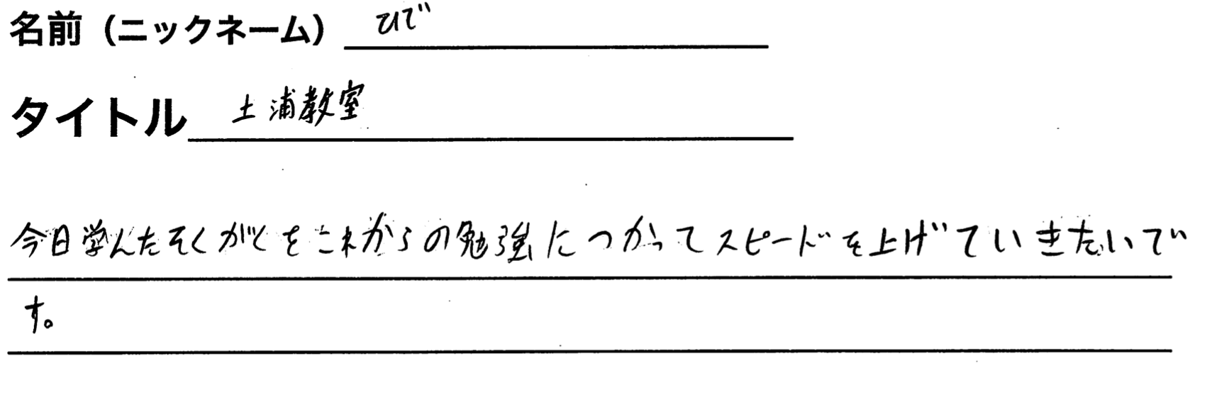 名前（ニックネーム） ひで
タイトル 土浦教室
今日学んたそくがくをこれからの勉強につかってスピードを上げていきたいで
す。